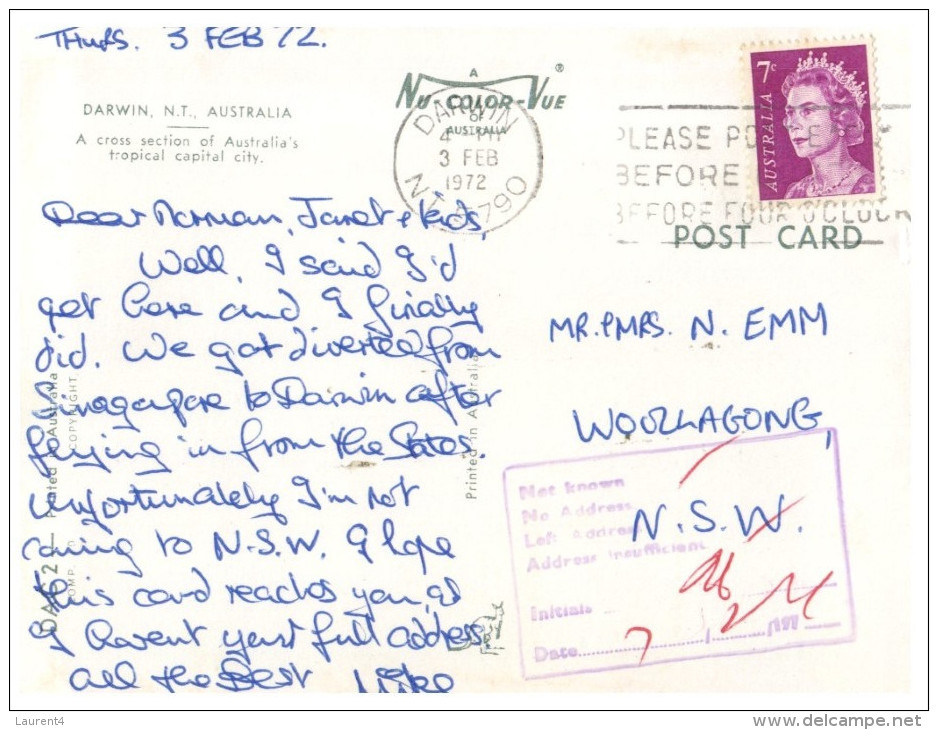 THURS. 3 FEB 72.
DARWIN, N.T., AUSTRALIA
A cross section of Australia's
tropical capital city.
A
NU-COLOR-VUE®
OF
AUSTRALIA
DARWIN
4 - PM
3 FEB
1972
N.T. 5790
PLEASE POST EA
BEFORE
BEFORE FOUR O'CLOCK
7c
AUSTRALIA
POST CARD
Dear Norman, Janet & kids,
Well, I said I'd
get here and I finally
did. We got diverted from
Singapore to Darwin after
flying in from the States.
Unfortunately I'm not
coming to N.S.W. I hope
this card reaches you, as
I havent your full address.
All the Best Mike
MR. & MRS. N. EMM
WOOLLAGONG,
N.S.W.
Not known
No Address
Left Address
Address Insufficient
Initials
Date 7 / 2 / 197
Printed in Australia
COPYRIGHT
Printed in Australia
Laurent4
www.delcampe.net